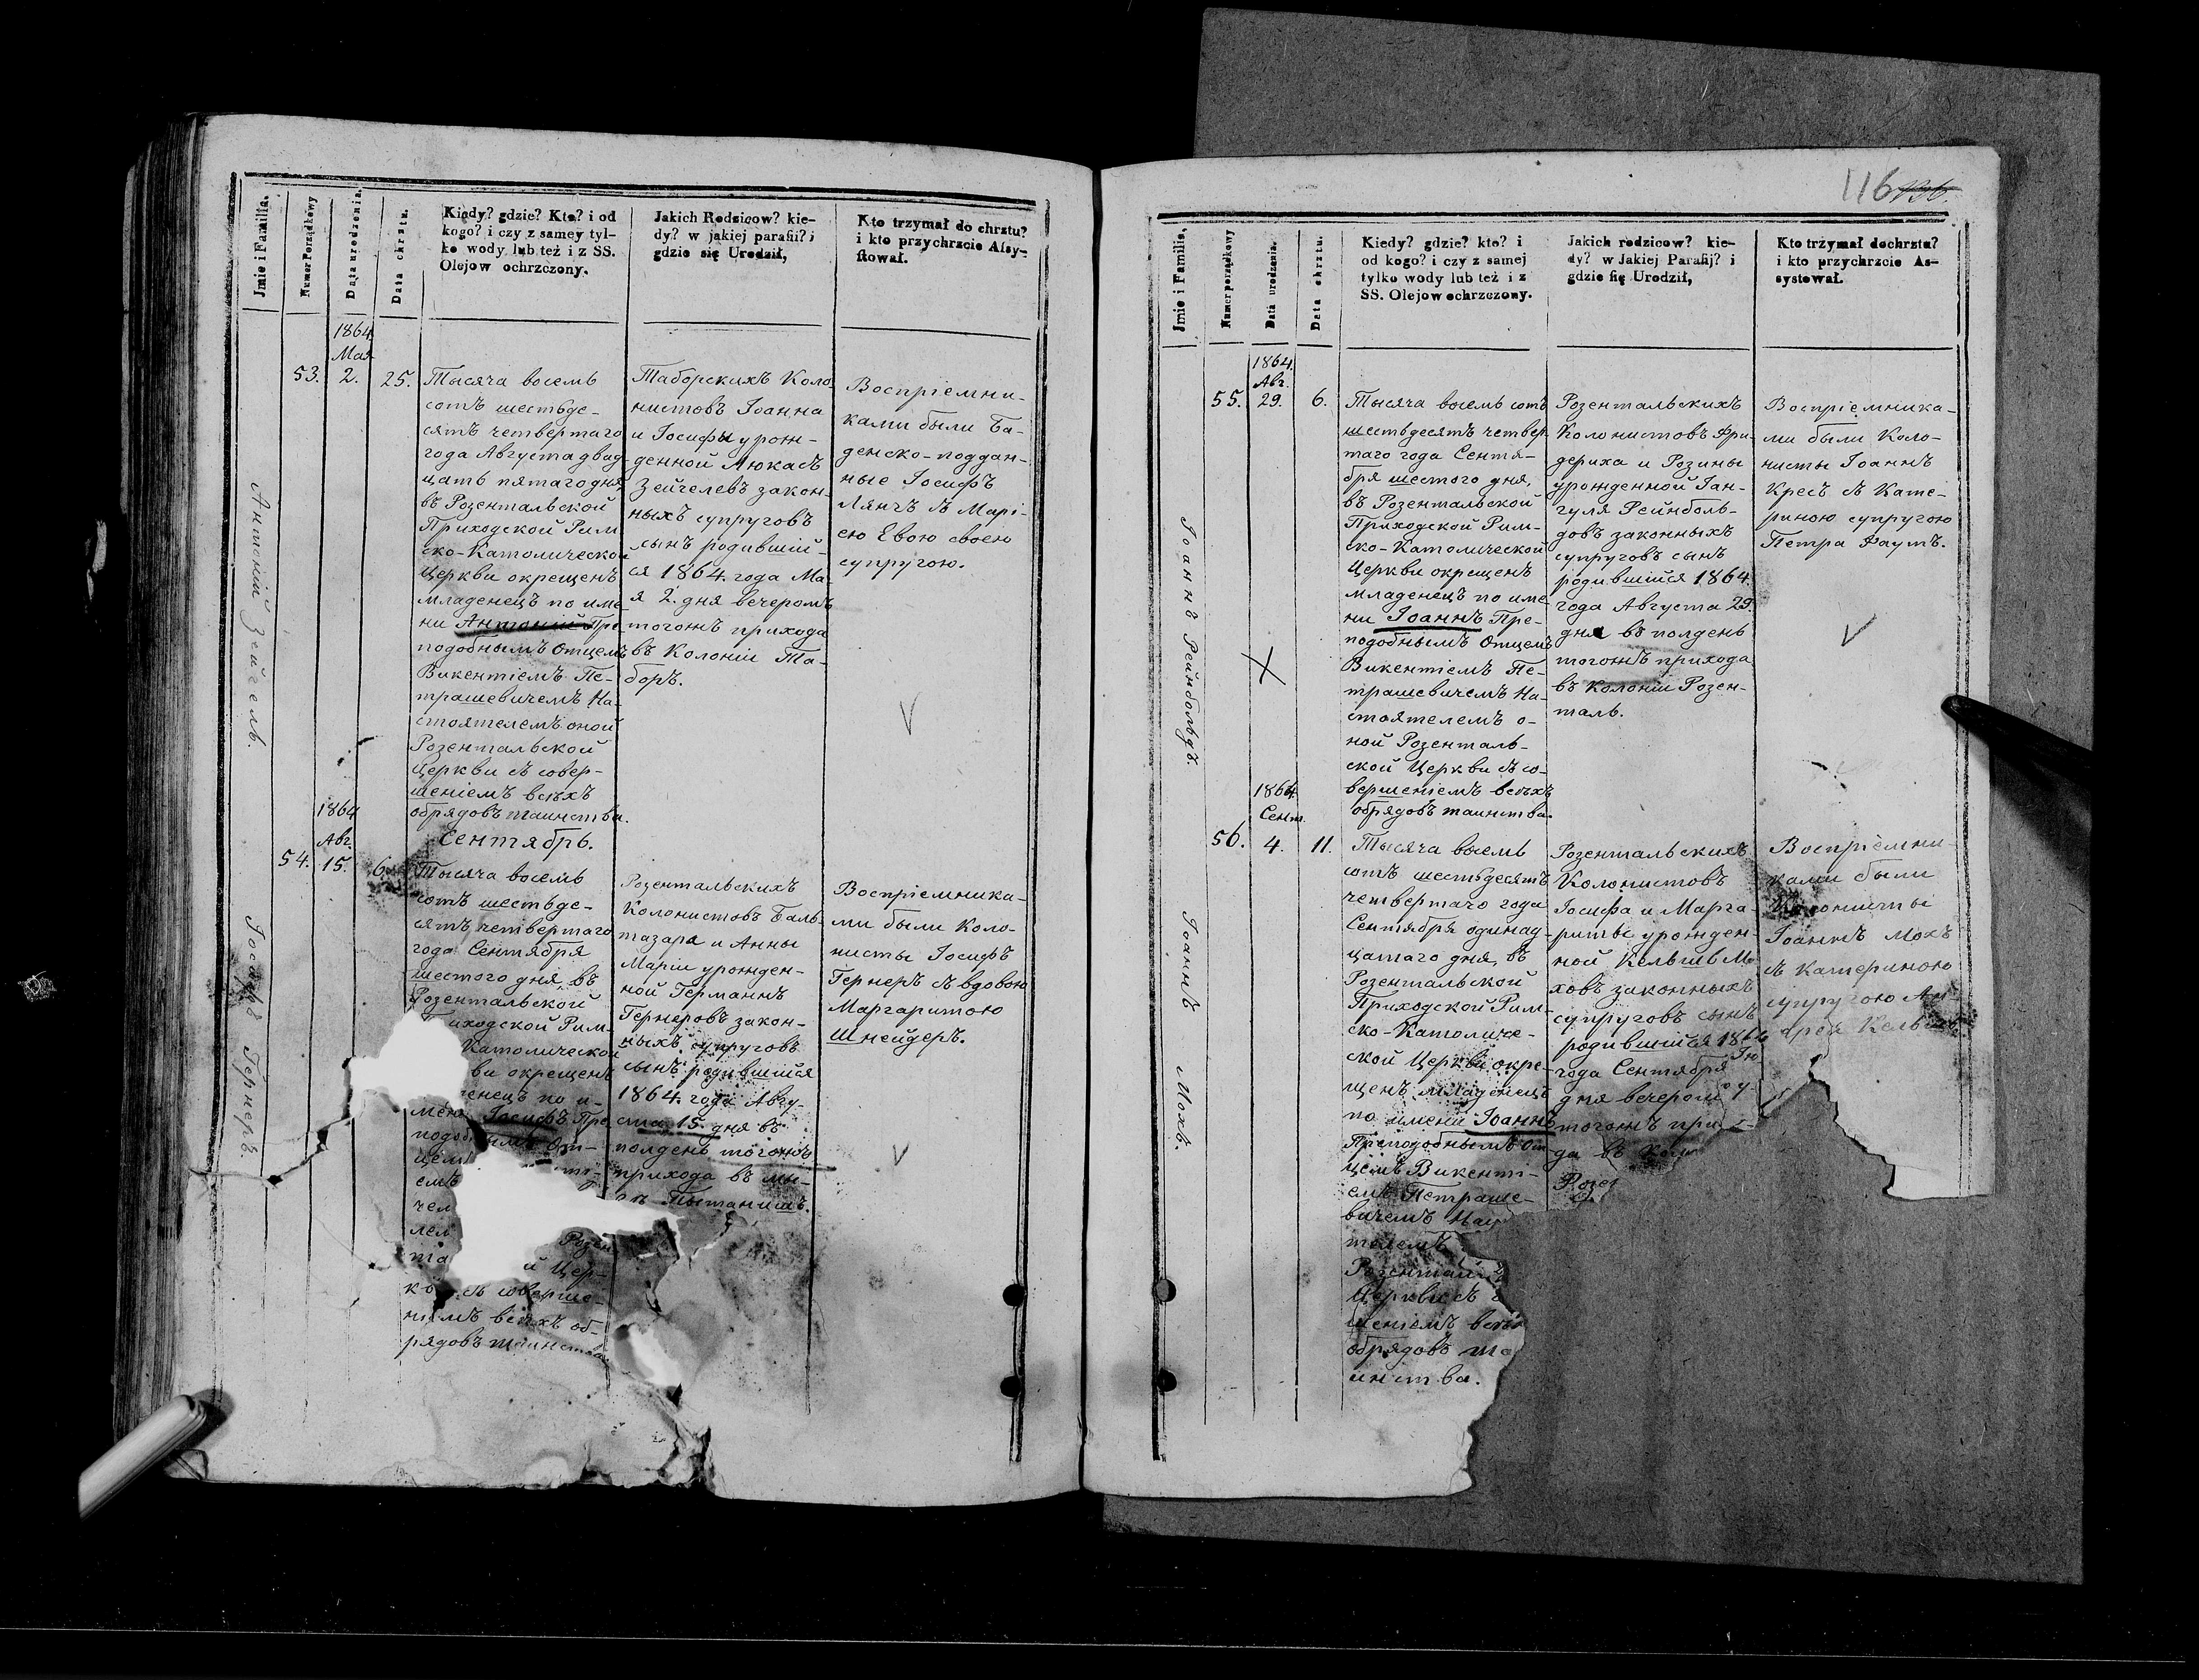 Jmie i Familia.
Numer Porządkowy
Data urodzenia.
Data chrztu.
Kiedy? gdzie? Kto? i od
kogo? i czy z samey tyl-
ko wody lub też i z SS.
Olejow ochrzczony.
Jakich Rodzicow? kie-
dy? w jakiej parafii? i
gdzie się Urodził,
Kto trzymał do chrztu?
i kto przychrzcie Assy-
stował.
Антоній Зейчель.
53.
1864
Мая
2.
25.
Тысяча восемь
сотъ шестьде-
сятъ четвертаго
года Августа двад-
цать пятаго дня
въ Розентальской
Приходской Рим-
ско-Католической
Церкви окрещенъ
младенецъ по име-
ни Антоній Пре-
подобнымъ Отцемъ
Викентіемъ Пе-
трашевичемъ На-
стоятелемъ оной
Розентальской
Церкви съ совер-
шеніемъ всѣхъ
обрядовъ таинства.
Таборскихъ Коло-
нистовъ Іоанна
и Іосифы урож-
денной Люкасъ
Зейчелевъ закон-
ныхъ супруговъ
сынъ родившій-
ся 1864. года Ма-
я 2. дня вечеромъ
тогожъ прихода
въ Колоніи Та-
боръ.
Воспріемни-
ками были Ба-
денско-поддан-
ные Іосифъ
Лянгъ съ Марі-
ею Евою своею
супругою.
Сентябрь.
Іосифъ Гернеръ
54.
1864
Авг.
15.
6.
Тысяча восемь
сотъ шестьде-
сятъ четвертаго
года Сентября
шестого дня, въ
Розентальской
иходской Рим-
Католической
ви окрещенъ
енецъ по и-
мени Іосифъ Пре-
подобнымъ От-
цемъ
емъ
чем
лем
та Розен
й Цер-
к съ соверше-
ніемъ всѣхъ об-
рядовъ таинства
Розентальскихъ
Колонистовъ Баль-
тазара и Анны
Маріи урожден-
ной Германнъ
Гернеровъ закон-
ныхъ супруговъ
сынъ родившійся
1864. года Авгу-
ста 15. дня въ
полдень тогожъ
прихода въ мы-
Пытанишъ.
Воспріемника-
ми были Коло-
нисты Іосифъ
Гернеръ съ вдовою
Маргаритою
Шнейдеръ.
116
Jmie i Familia,
Numer porządkowy
Data urodzenia.
Data chrztu.
Kiedy? gdzie? kto? i
od kogo? i czy z samej
tylko wody lub też i z
SS. Olejow ochrzczony.
Jakich rodzicow? kie-
dy? w Jakiej Parafij? i
gdzie się Urodził,
Kto trzymał dochrztu?
i kto przychrzcie As-
systował.
Іоаннъ Рейнбольдъ.
55.
1864.
Авг.
29.
6.
Тысяча восемь сотъ
шестьдесятъ четвер-
таго года Сентя-
бря шестого дня,
въ Розентальской
Приходской Рим-
ско-Католической
Церкви окрещенъ
младенецъ по име-
ни Іоаннъ Пре-
подобнымъ Отцемъ
Викентіемъ Пе-
трашевичемъ На-
стоятелемъ о-
ной Розенталь-
ской Церкви съ со-
вершеніемъ всѣхъ
обрядовъ таинства.
Розентальскихъ
Колонистовъ Фри-
дериха и Розины
урожденной Ган-
гуля Рейнболь-
довъ законныхъ
супруговъ сынъ
родившійся 1864.
года Августа 29.
дня въ полдень
тогожъ прихода
въ Колоніи Розен-
таль.
Воспріемника-
ми были Коло-
нисты Іоаннъ
Кресъ съ Кате-
риною супругою
Петра Фаутъ.
Іоаннъ Мохъ.
56.
1864.
Сент.
4.
11.
Тысяча восемь
сотъ шестьдесятъ
четвертаго года
Сентября одинад-
цатаго дня, въ
Розентальской
Приходской Рим-
ско-Католиче-
ской Церкви окре-
щенъ младенецъ
по имени Іоаннъ
Преподобнымъ От-
цемъ Викенті-
емъ Петраше-
вичемъ На
телемъ
Розентал
Церкви съ
шеніемъ всѣх
обрядовъ та
инства.
Розентальскихъ
Колонистовъ
Іосифа и Марга-
риты урожден-
ной Кельшъ Мо-
ховъ законныхъ
супруговъ сынъ
родившійся 186
года Сентября
дня вечером
тогожъ при
да въ Кол
Розе
Воспріемни-
ками были
Колонисты
Іоаннъ Мохъ
съ Катериною
супругою Ан-
дрея Кельшъ